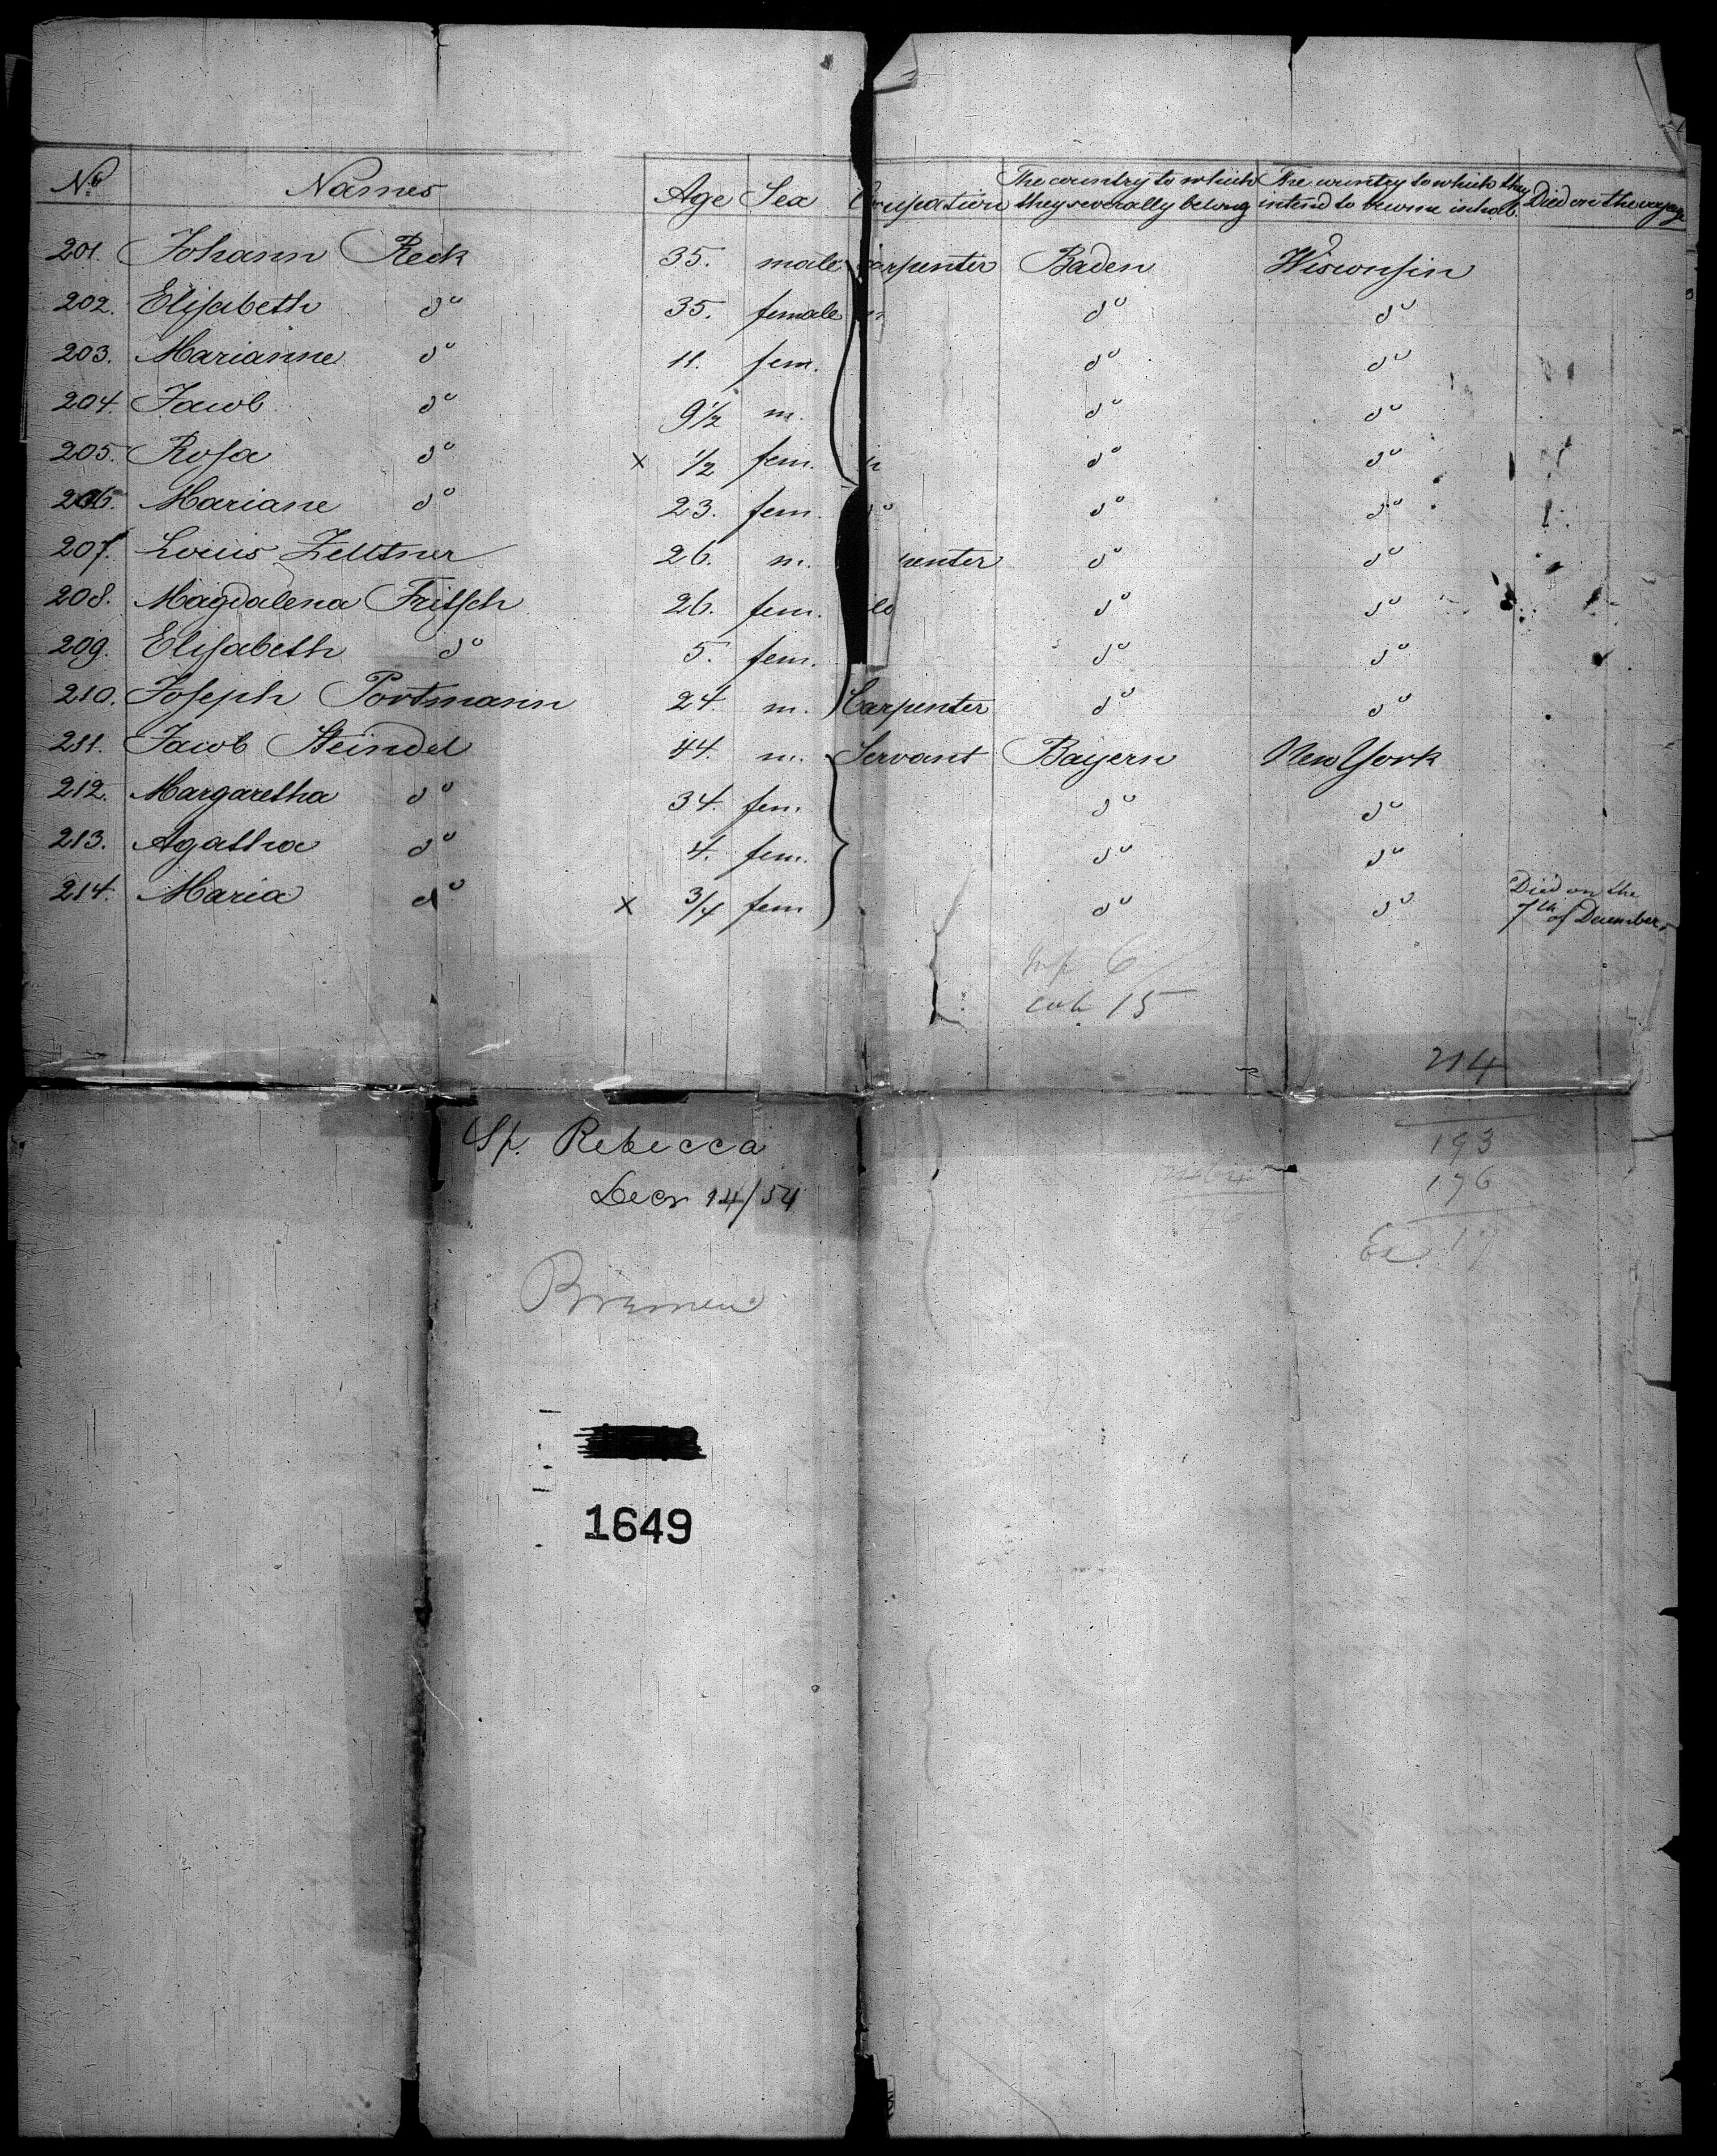 No Names Age Sex Occupation The country to which they severally belong The country to which they intend to become inhab. Died on the voyage
201. Johann Reck 35. male Carpenter Baden Wisconsin
202. Elisabeth do 35. female do do
203. Marianne do 11. fem. do do
204. Jacob do 9 1/2 m. do do
205. Rosa do x 1/2 fem. do do
206. Mariane do 23. fem. do do do
207. Louis Zelltner 26. m. penter do do
208. Magdalena Fritsch 26. fem. do do
209. Elisabeth do 5. fem. do do
210. Joseph Portmann 24. m. Carpenter do do
211. Jacob Steindel 44. m. Servant Bayern New York
212. Margaretha do 34. fem. do do
213. Agatha do 4. fem. do do
214. Maria do x 3/4 fem do do Died on the 7th of December,
inf 6
cab 15
214
193
176
Ex 17
Sp. Rebecca
Decr 14/54
Bremen
1649